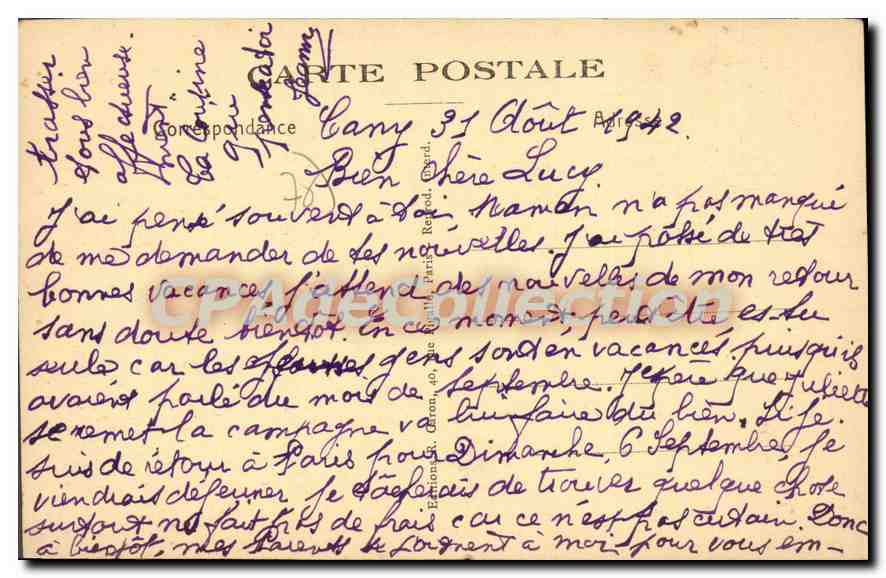 CARTE POSTALE
Correspondance
Adresse
Cany 31 Août 1942.
Bien chère Lucy.
J'ai pensé souvent à toi Maman n'a pas manqué
de me demander de tes nouvelles. J'ai passé de très
bonnes vacances. J'attend des nouvelles de mon retour
sans doute bientôt. En ce moment, peut-être es-tu
seule car les gens sont en vacances puisqu'ils
avaient parlé du mois de Septembre. J'espère que Juliette
se remet la campagne va lui faire du bien. Si je
suis de retour à Paris pour Dimanche, 6 Septembre, je
viendrais déjeuner je de trouver quelque chose
surtout ne fait pas de frais car ce n'est pas certain. Donc
à bientôt, mes Parents se joignent à moi pour vous em-
trasser
tous bien
affectueuse-
ment
Ta cousine
que
pense à toi
Jeanne
Editions R. Guiron, 40, rue Pigalle, Paris - Reprod. Interd.
CPAdeCollection